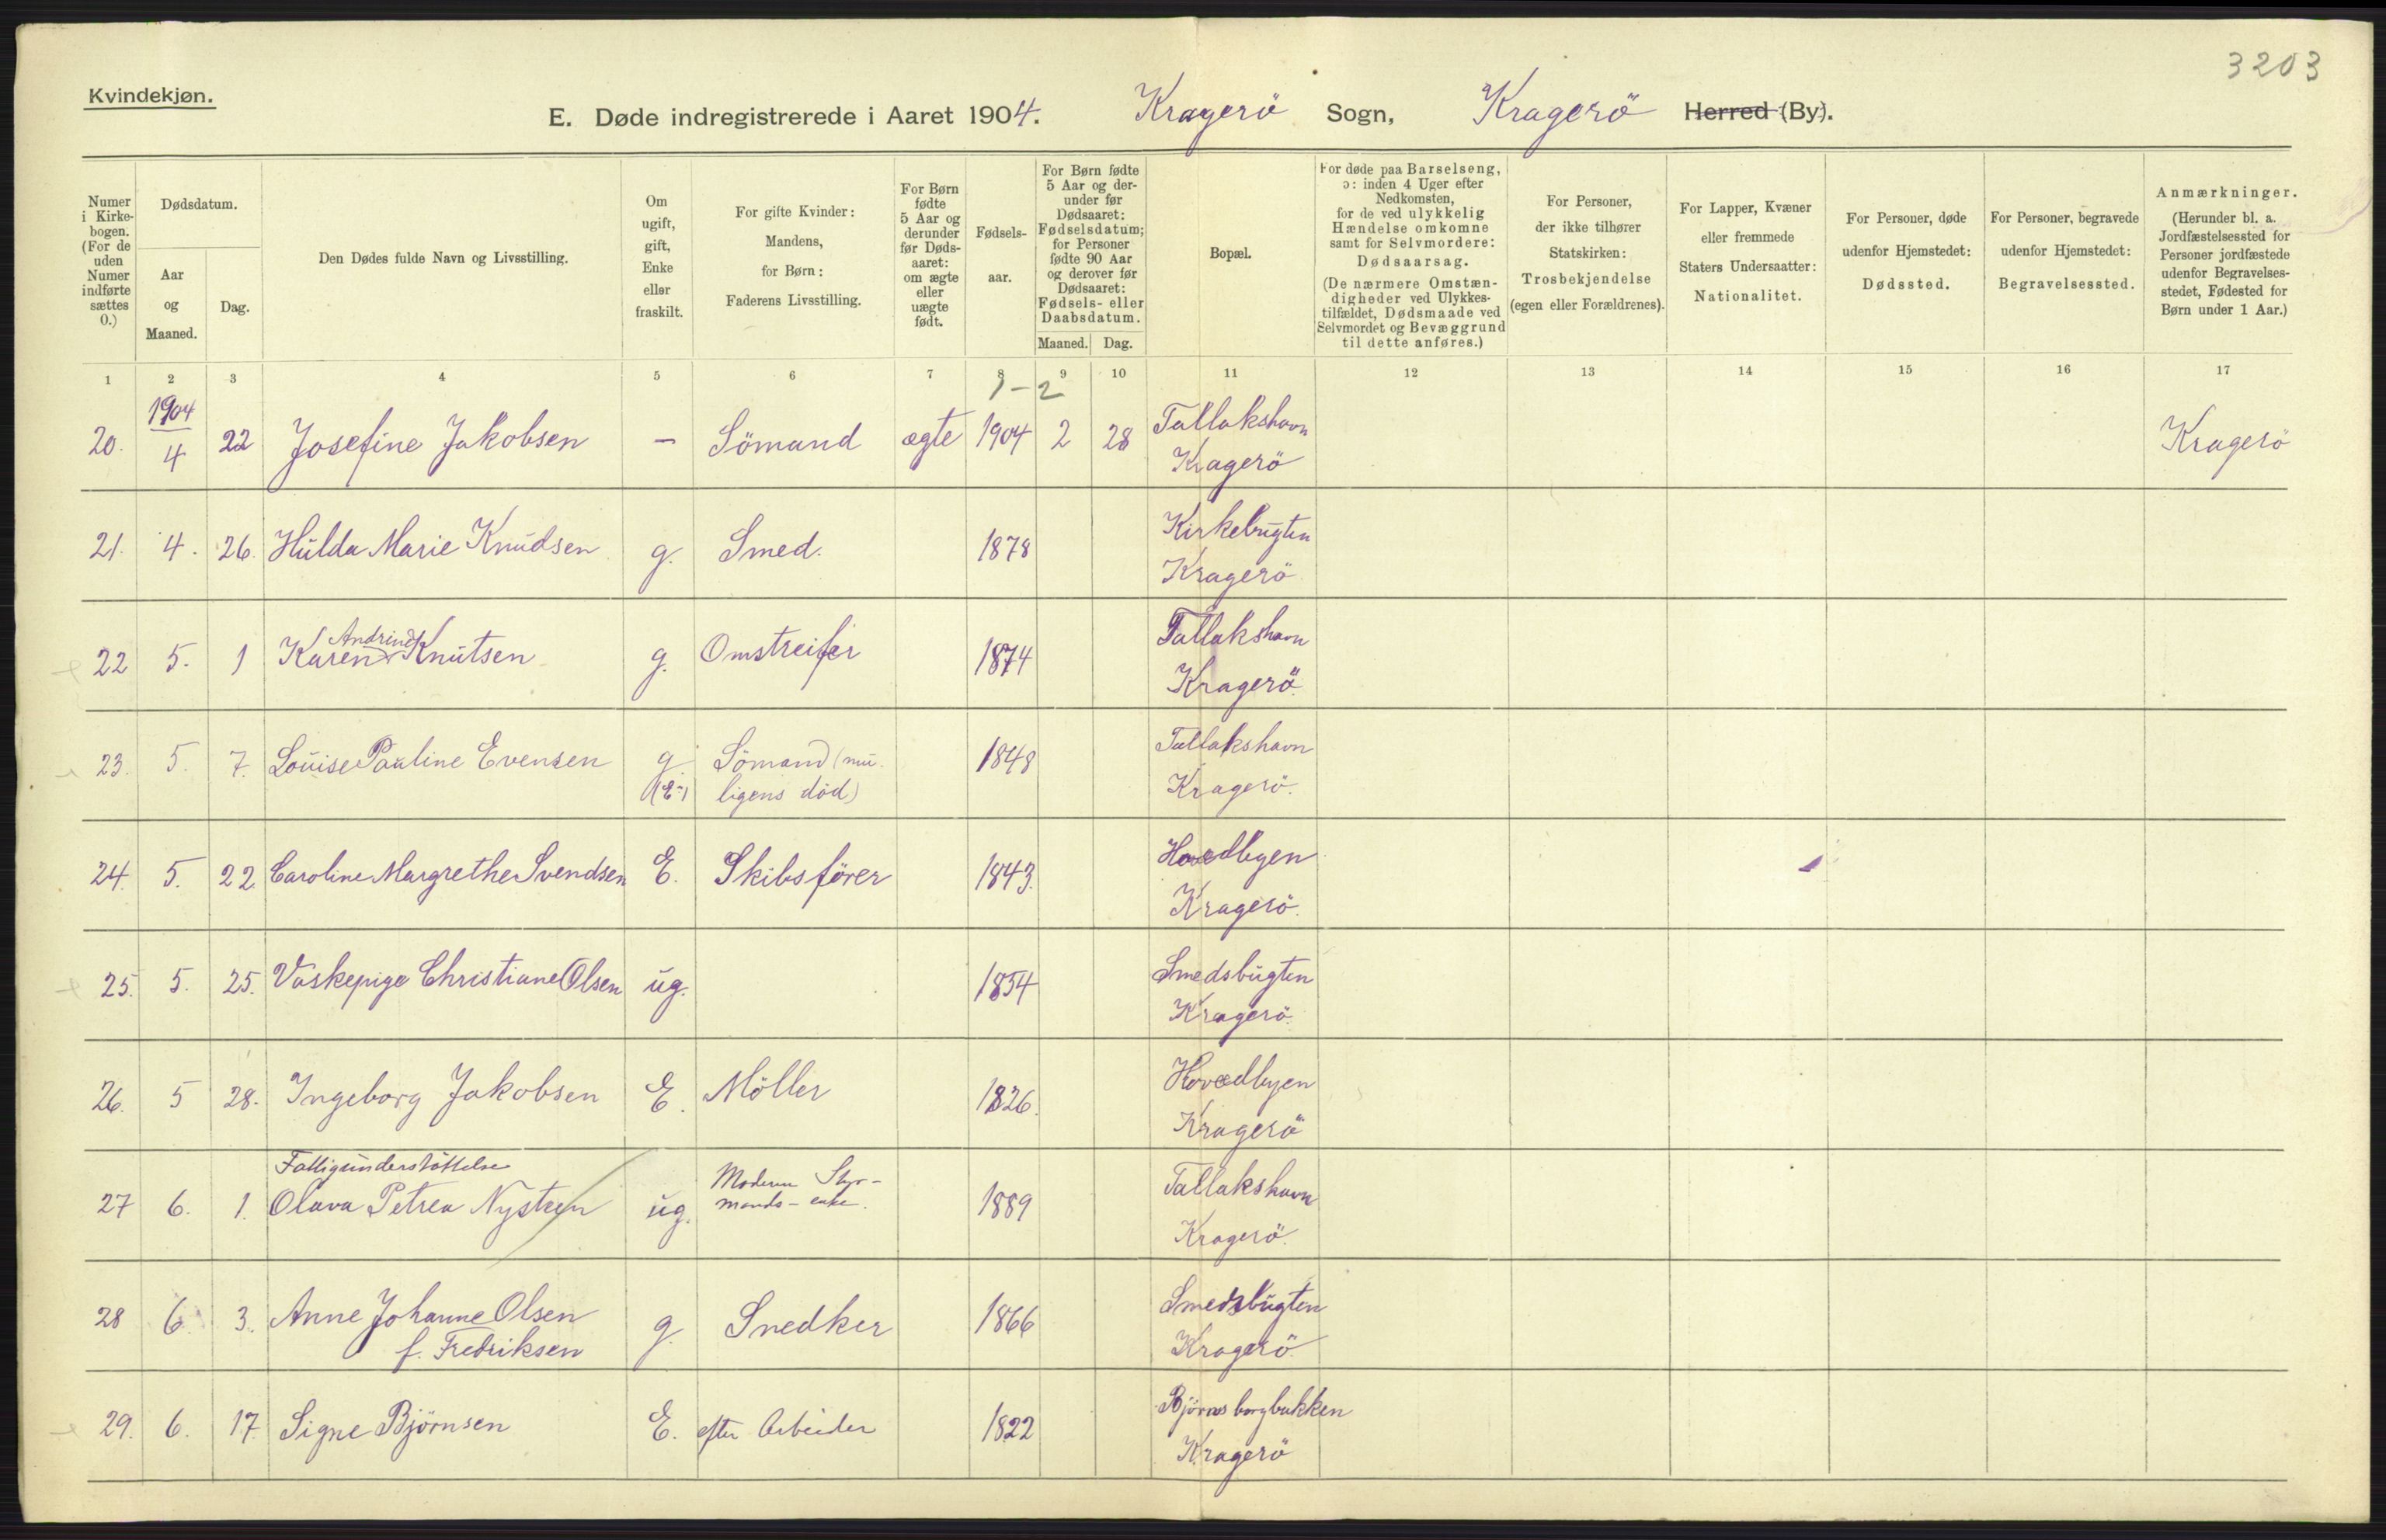 3203
Kvindekjøn.
E. Døde indregistrerede i Aaret 1904. Kragerö Sogn, Kragerö Herred (By).
Numer i Kirkebogen. (For de uden Numer indførte sættes 0.)
Dødsdatum.
Aar og Maaned.
Dag.
Den Dødes fulde Navn og Livsstilling.
Om ugift, gift, Enke eller fraskilt.
For gifte Kvinder: Mandens, for Børn: Faderens Livsstilling.
For Børn fødte 5 Aar og derunder før Dødsaaret: om ægte eller uægte født.
Fødselsaar.
For Børn fødte 5 Aar og derunder før Dødsaaret: Fødselsdatum; for Personer fødte 90 Aar og derover før Dødsaaret: Fødsels- eller Daabsdatum.
Maaned. Dag.
Bopæl.
For døde paa Barselseng, ɔ: inden 4 Uger efter Nedkomsten, for de ved ulykkelig Hændelse omkomne samt for Selvmordere: Dødsaarsag. (De nærmere Omstændigheder ved Ulykkestilfældet, Dødsmaade ved Selvmordet og Bevæggrund til dette anføres.)
For Personer, der ikke tilhører Statskirken: Trosbekjendelse (egen eller Forældrenes).
For Lapper, Kvæner eller fremmede Staters Undersaatter: Nationalitet.
For Personer, døde udenfor Hjemstedet: Dødssted.
For Personer, begravede udenfor Hjemstedet: Begravelsessted.
Anmærkninger. (Herunder bl. a. Jordfæstelsessted for Personer jordfæstede udenfor Begravelsesstedet, Fødested for Børn under 1 Aar.)
1 2 3 4 5 6 7 8 9 10 11 12 13 14 15 16 17
1-2
1904
20. 4 22 Josefine Jakobsen - Sömand ægte 1904 2 28 Tallakshavn Kragerö Kragerö
21. 4. 26. Hulda Marie Knudsen g. Smed. 1878 Kirkebugten Kragerö
22 5. 1 Karen Andrine Knutsen g. Omstreifer 1874 Tallakshavn Kragerö.
23. 5. 7. Louise Pauline Evensen g (E.) Sömand (muligens död) 1848 Tallakshavn Kragerö.
24. 5. 22 Caroline Margrethe Svendsen E. Skibsförer 1843. Hovedbyen Kragerö.
25. 5. 25. Vaskepige Christiane Olsen ug. 1854 Smedsbugten Kragerö.
26. 5 28. Ingeborg Jakobsen E. Möller 1826. Hovedbyen Kragerö
Fattigunderstöttelse
27 6. 1. Olava Petrea Nysten ug. Moderen Styrmands-enke. 1889 Tallakshavn Kragerö.
28 6 3. Anne Johanne Olsen f. Fredriksen g. Snedker 1866 Smedsbugten Kragerö
29. 6. 17. Signe Björnsen E. efter Arbeider 1822 Björnsborgbakken Kragerö